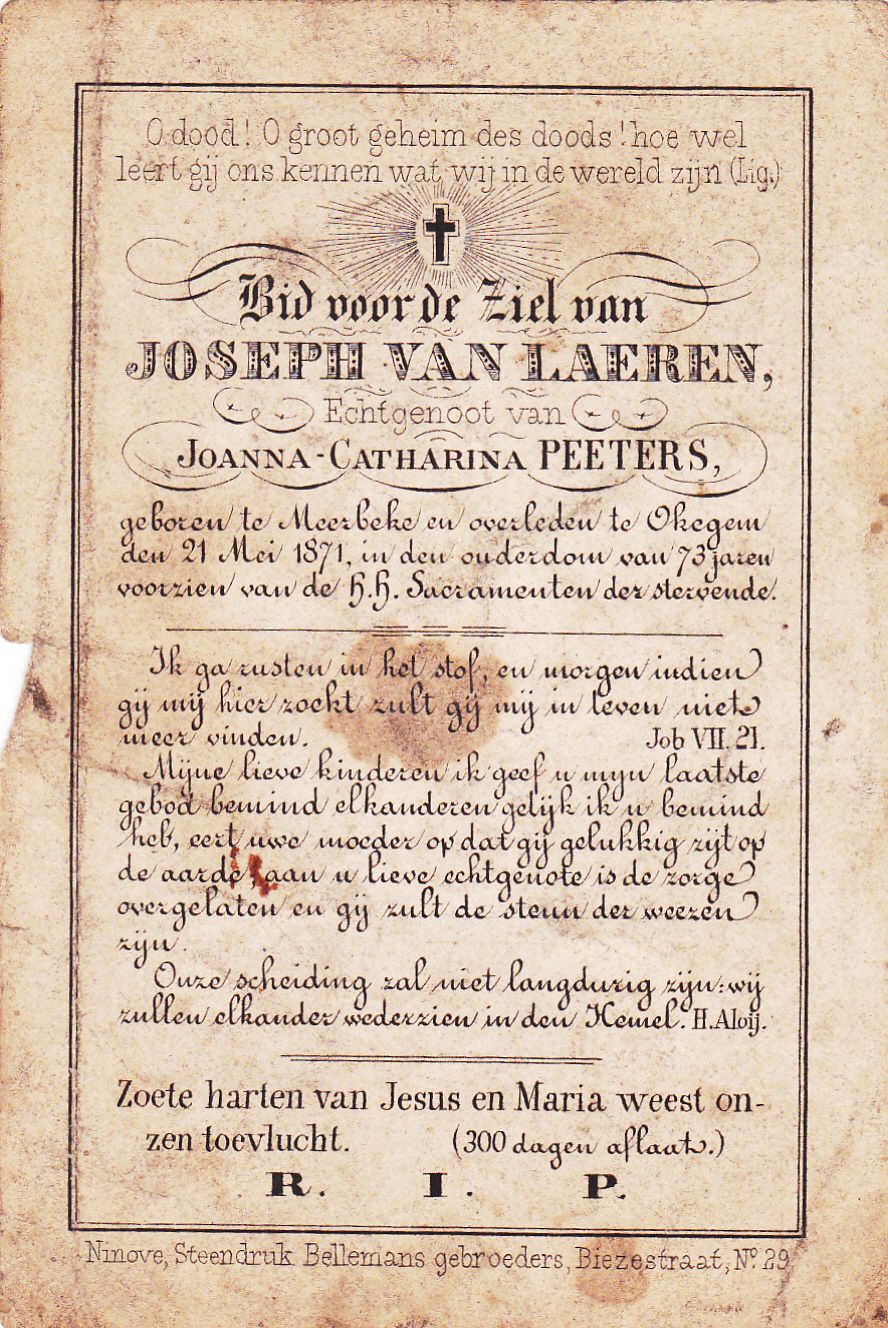 O dood! O groot geheim des doods! hoe wel
leert gij ons kennen wat wij in de wereld zijn (Lig.)
Bid voor de Ziel van
JOSEPH VAN LAEREN,
Echtgenoot van
JOANNA-CATHARINA PEETERS,
geboren te Meerbeke en overleden te Okegem
den 21 Mei 1871, in den ouderdom van 73 jaren
voorzien van de H.H. Sacramenten der stervende.
Ik ga rusten in het stof, en morgen indien
gij mij hier zoekt zult gij mij in leven niet
meer vinden. Job VII. 21.
Mijne lieve kinderen ik geef u mijn laatste
gebod bemind elkanderen gelijk ik u bemind
heb, eert uwe moeder op dat gij gelukkig zijt op
de aarde, aan u lieve echtgenote is de zorge
overgelaten en gij zult de steun der weezen
zijn.
Onze scheiding zal niet langdurig zijn: wij
zullen elkander wederzien in den Hemel. H. Aloij.
Zoete harten van Jesus en Maria weest on-
zen toevlucht. (300 dagen aflaat.)
R. I. P.
Ninove, Steendruk Bellemans gebroeders, Biezestraat, Nº 29